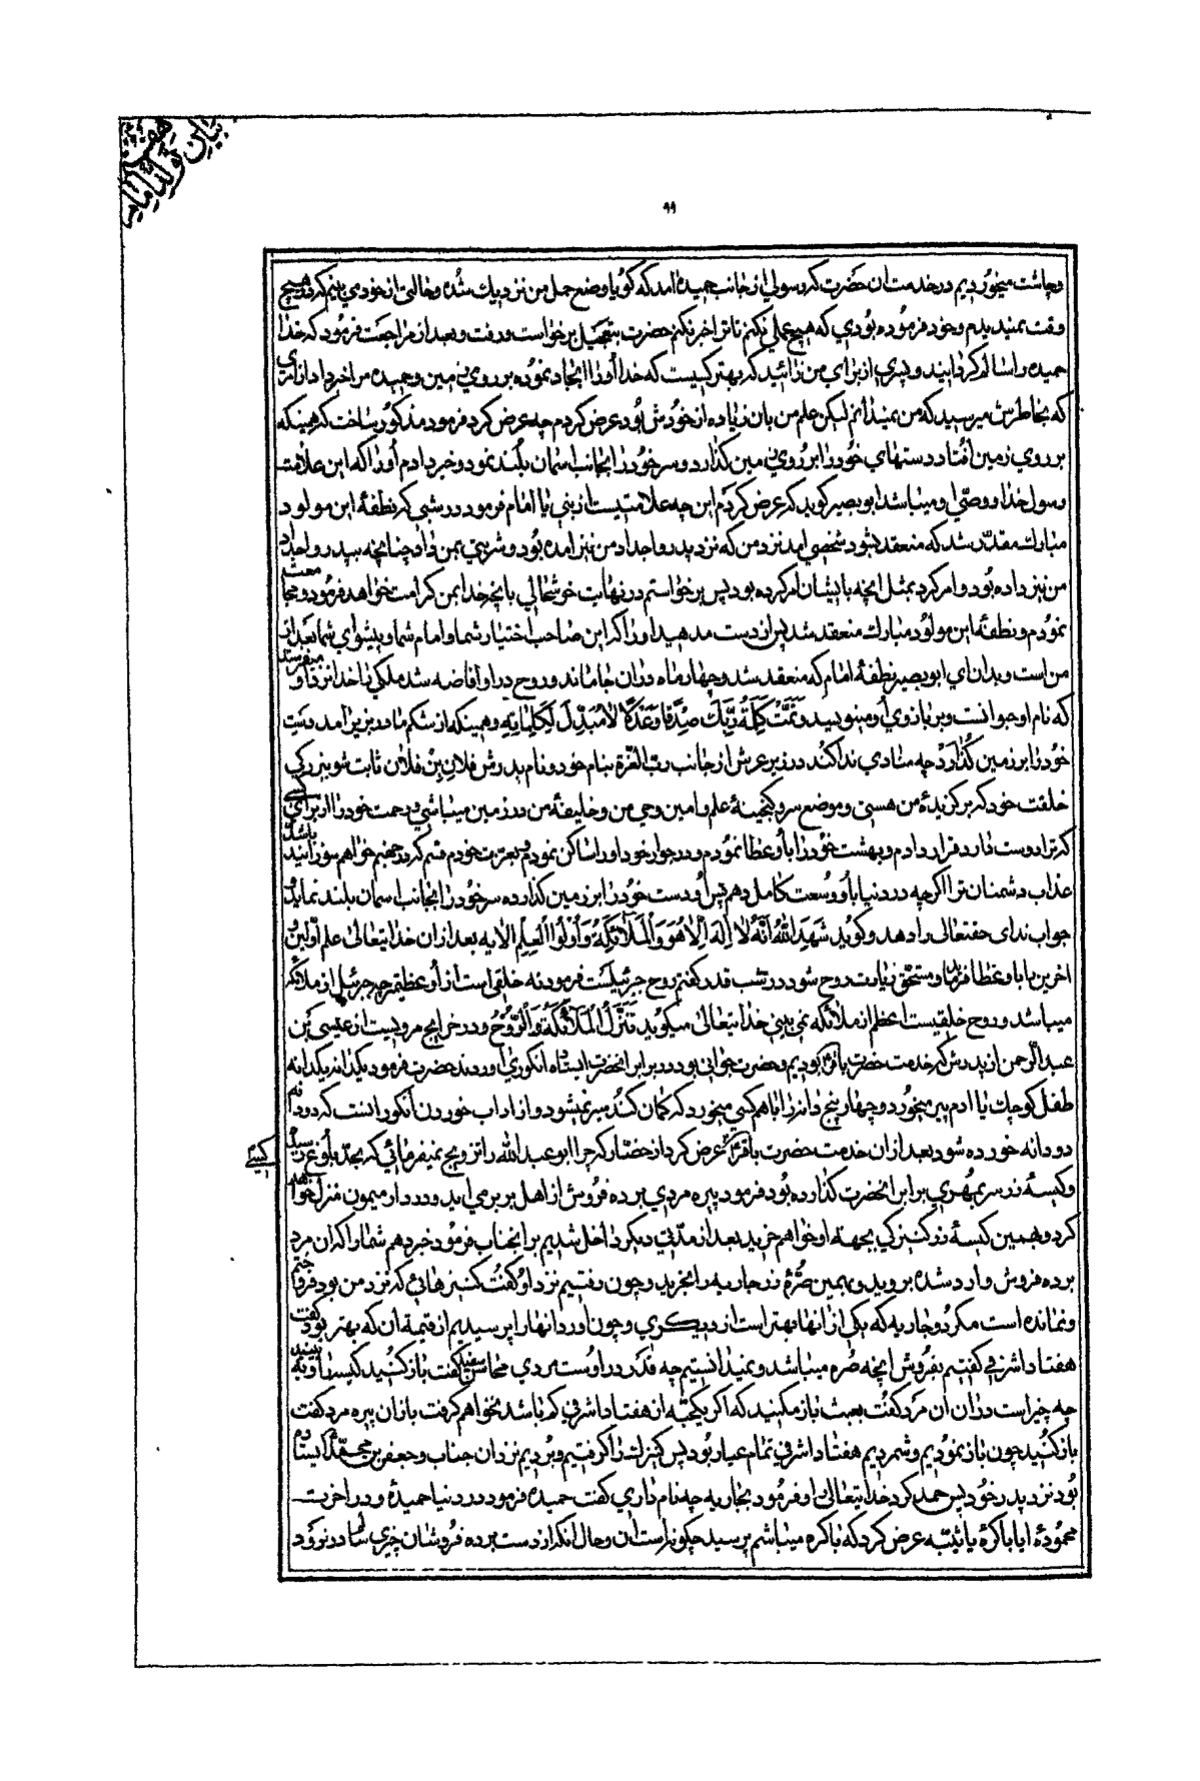 بیان تولد امام هفتم
۹۹
وچاشت میخوردیم در خدمت ان حضرت که رسولی از جانب حمیده امد که کویا وضع حمل من نزدیك شده وحالتی از خودمی بینم که در هیچ
وقت نمیدیدم وخود فرموده بودی که هیچ عملی نکنم تا ترا خبر نکنم حضرت بتعجیل برخواست ورفت وبعد از مراجعت فرمود که خدا
حمیده را سالم کردانید وپسری از برای من زائید که بهتر کسیست که خدا اورا ایجاد نموده بر روی زمین وحمیده مرا خبر داد از امری
که بخاطرش میرسید که من نمیدانم لیکن علم من بان زیاده از خودش بود عرض کردم چه عرض کرد فرمود مذکور ساخت که همینکه
بر روی زمین افتاد دستهای خود را بر روی زمین کذارد وسر خود را بجانب اسمان بلند نمود وخبر دادم اورا که این علامت
رسول خدا ووصی او میباشد ابو بصیر کوید که عرض کردم این چه علامتیست از نبی یا امام فرمود در شبی که نطفۀ این مولود
مبارك مقدّر شد که منعقد بشود شخصی امد نزد من که نزد پدر واجداد من نیز امده بود وشربتی بمن داد چنانچه بپدر واجداد
من نیز داده بود وامر کرد بمثل انچه بایشان امر کرده بود پس برخواستم در نهایت خوشحالی بانچه خدا بمن کرامت خواهد فرمود ومجامعت
نمودم ونطفۀ این مولود مبارك منعقد شد پس از دست مدهید اورا که این صاحب اختیار شما وامام شما وپیشوای شما بعد از
من است وبدان ای ابو بصیر نطفۀ امام که منعقد شد وچهار ماه دران جا ماند وروح در او افاضه شد ملکی را خدا نزد او میفرستد
که نام او حیوانست وبر بازوی او مینویسد وَتَمَّتْ کَلِمَةُ رَبِّكَ صِدْقًا وَعَدْلًا لَا مُبَدِّلَ لِکَلِمَاتِهِ وهمینکه از شکم مادر بزیر امد دست
خود را بر زمین کذارد چه منادی ندا کند در زیر عرش از جانب ربّ العزّة بنام خود ونام پدرش فلان بن فلان ثابت شو بزرکی
خلقت خود که برکزیدۀ من هستی وموضع سر وکنجینۀ علم وامین وحی من وخلیفۀ من در زمین میباشی ورحمت خود را از برای کسی
که ترا دوست دارد قرار دادم وبهشت خود را باو عطا نمودم ودر جوار خود اورا ساکن نمودم وبعزت خودم قسم که در جهنم خواهم سوزانید باشد
عذاب دشمنان ترا اکرچه در دنیا باو وسعت کامل دهم پس او دست خود را بر زمین کذارده سر خود را بجانب اسمان بلند نماید
جواب ندای حقتعالی را دهد وکوید شَهِدَ اللهُ اَنَّهُ لَا اِلَهَ اِلَّا هُوَ وَالْمَلَائِکَةُ وَاُولُوا الْعِلْمِ الایه بعد ازان خدایتعالی علم اوّلین
اخرین باو عطا فرماید ومستحق زیارت روح شود در شب قدر کفتم روح جبرئیلست فرمود نه خلقی است از او عظیمتر چه جبرئیل از ملائکه
میباشد وروح خلقیست اعظم از ملائکه نمی بینی خدایتعالی میکوید تَنَزَّلُ الْمَلَائِکَةُ وَالرُّوحُ ودر خرایج مرویست از عیسی بن
عبد الرحمن از پدرش که خدمت حضرت باقر بودیم وحضرت جوانی بود در برابر انحضرت ایستاده انکوری اوردند حضرت فرمود یکدانه یکدانه
طفل کوچك یا ادم پیر میخورد وچهار پنج دانه را باهم کسی میخورد که کمان کند سیر نمیشود واز اداب خوردن انکور انست که دو دانه
دو دانه خورده شود بعد ازان خدمت حضرت باقر عرض کرد از حضّار که چرا ابو عبد الله را تزویج نمیفرمائی که بحدّ بلوغ رسیده
وکیسۀ زر سر بمهری برابر انحضرت کذارده بود فرمود پیره مردی برده فروش از اهل بربر می اید ودر دار میمون منزل خواهد
کرد وهمین کیسۀ زر کنیزکی بجهتۀ او خواهم خرید بعد از مدّتی دیکر داخل شدیم بر انجناب فرمود خبر دهم شما را که ان مرد
برده فروش وارد شده بروید وبهمین صُرّۀ زر جاریه را بخرید وچون رفتیم نزد او کفت کنیزهائی که نزد من بود فروختم
ونمانده است مکر دو جاریه که یکی از انها بهتر است از دیکری وچون اورد انهارا پرسیدیم از قیمة ان که بهتر بود کفت
هفتاد اشرفی کفتیم بفروش انچه صره میباشد ونمیدانستیم چه قدر در اوست مردی محاسن سفید کفت باز کنید کیسه را وببینید
چه چیز است دران ان مرد کفت بعبث باز مکنید که اکر یکحبّه از هفتاد اشرفی کم باشد نخواهم کرفت باز ان پیره مرد کفت
باز کنید چون باز نمودیم وشمردیم هفتاد اشرفی تمام عیار بود پس کنیزك را کرفتیم وبردیم نزد ان جناب وجعفر بن محمّد ایستاده
بود نزد پدر خود پس حمد کرد خدایتعالی را وفرمود بجاریه چه نام داری کفت حمیده فرمود در دنیا حمیدۀ ودر اخرت
محمودۀ ایا باکرۀ یا ثیّبه عرض کرد که باکره میباشم پرسید چکونه راست ان وحال انکه از دست برده فروشان چیزی سالم در نرود